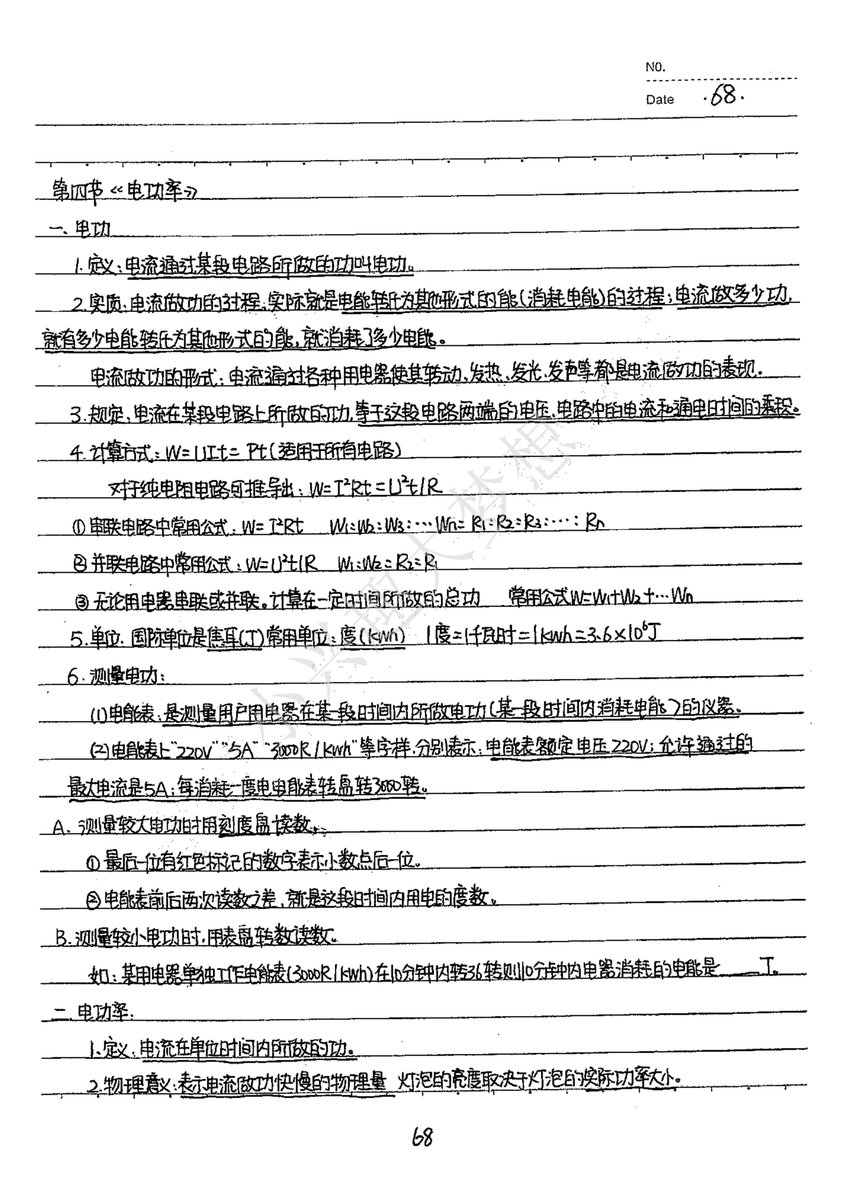 N0.
Date ·68·
第四节《电功率》
一、电功
1.定义：电流通过某段电路所做的功叫电功。
2.实质：电流做功的过程，实际就是电能转化为其他形式的能（消耗电能）的过程；电流做多少功，
就有多少电能转化为其他形式的能，就消耗了多少电能。
电流做功的形式：电流通过各种用电器使其转动、发热、发光、发声等都是电流做功的表现。
3.规定：电流在某段电路上所做的功，等于这段电路两端的电压、电路中的电流和通电时间的乘积。
4.计算方式：W=UIt=Pt（适用于所有电路）
对于纯电阻电路可推导出：W=I²Rt=U²t/R
①串联电路中常用公式：W=I²Rt W₁:W₂:W₃:…Wn=R₁:R₂:R₃:…:Rn
②并联电路中常用公式：W=U²t/R W₁:W₂=R₂:R₁
③无论用电器串联或并联。计算在一定时间所做的总功 常用公式W=W₁+W₂+…Wn
5.单位：国际单位是焦耳(J)常用单位：度(kwh) 1度=1千瓦时=1kwh=3.6×10⁶J
6.测量电功：
(1)电能表：是测量用户用电器在某一段时间内所做电功（某一段时间内消耗电能）的仪器。
(2)电能表上“220V”“5A”“3000R/kwh”等字样，分别表示：电能表额定电压220V；允许通过的
最大电流是5A；每消耗一度电电能表转盘转3000转。
A.测量较大电功时用刻度盘读数，
①最后一位有红色标记的数字表示小数点后一位。
②电能表前后两次读数之差，就是这段时间内用电的度数。
B.测量较小电功时，用表盘转数读数。
如：某用电器单独工作电能表(3000R/kwh)在10分钟内转36转则10分钟内电器消耗的电能是____J。
二、电功率：
1.定义：电流在单位时间内所做的功。
2.物理意义：表示电流做功快慢的物理量 灯泡的亮度取决于灯泡的实际功率大小。
68
小兴趣大梦想